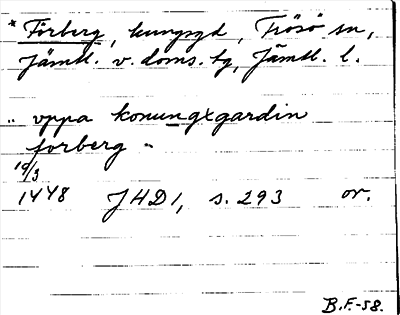 * Förberg, kungsgd, Frösö sn,
Jämtl. v. doms. tg, Jämtl. l.
„ vppa konungxgardin
forberg "
10/3
1448 JHD 1, s. 293 or.
B.F.-58.